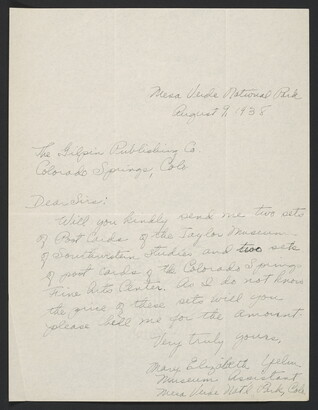 Mesa Verde National Park
August 9, 1938
The Gilpin Publishing Co.
Colorado Springs, Colo
Dear Sirs:
Will you kindly send me two sets
of Post Cards of the Taylor Museum
of Southwestern Studies and two sets
of post cards of the Colorado Springs
Fine Arts Center. As I do not know
the price of these sets will you
please bill me for the amount.
Very truly yours,
Mary Elizabeth
Museum Assistant
Mesa Verde Nat'l Park, Colo